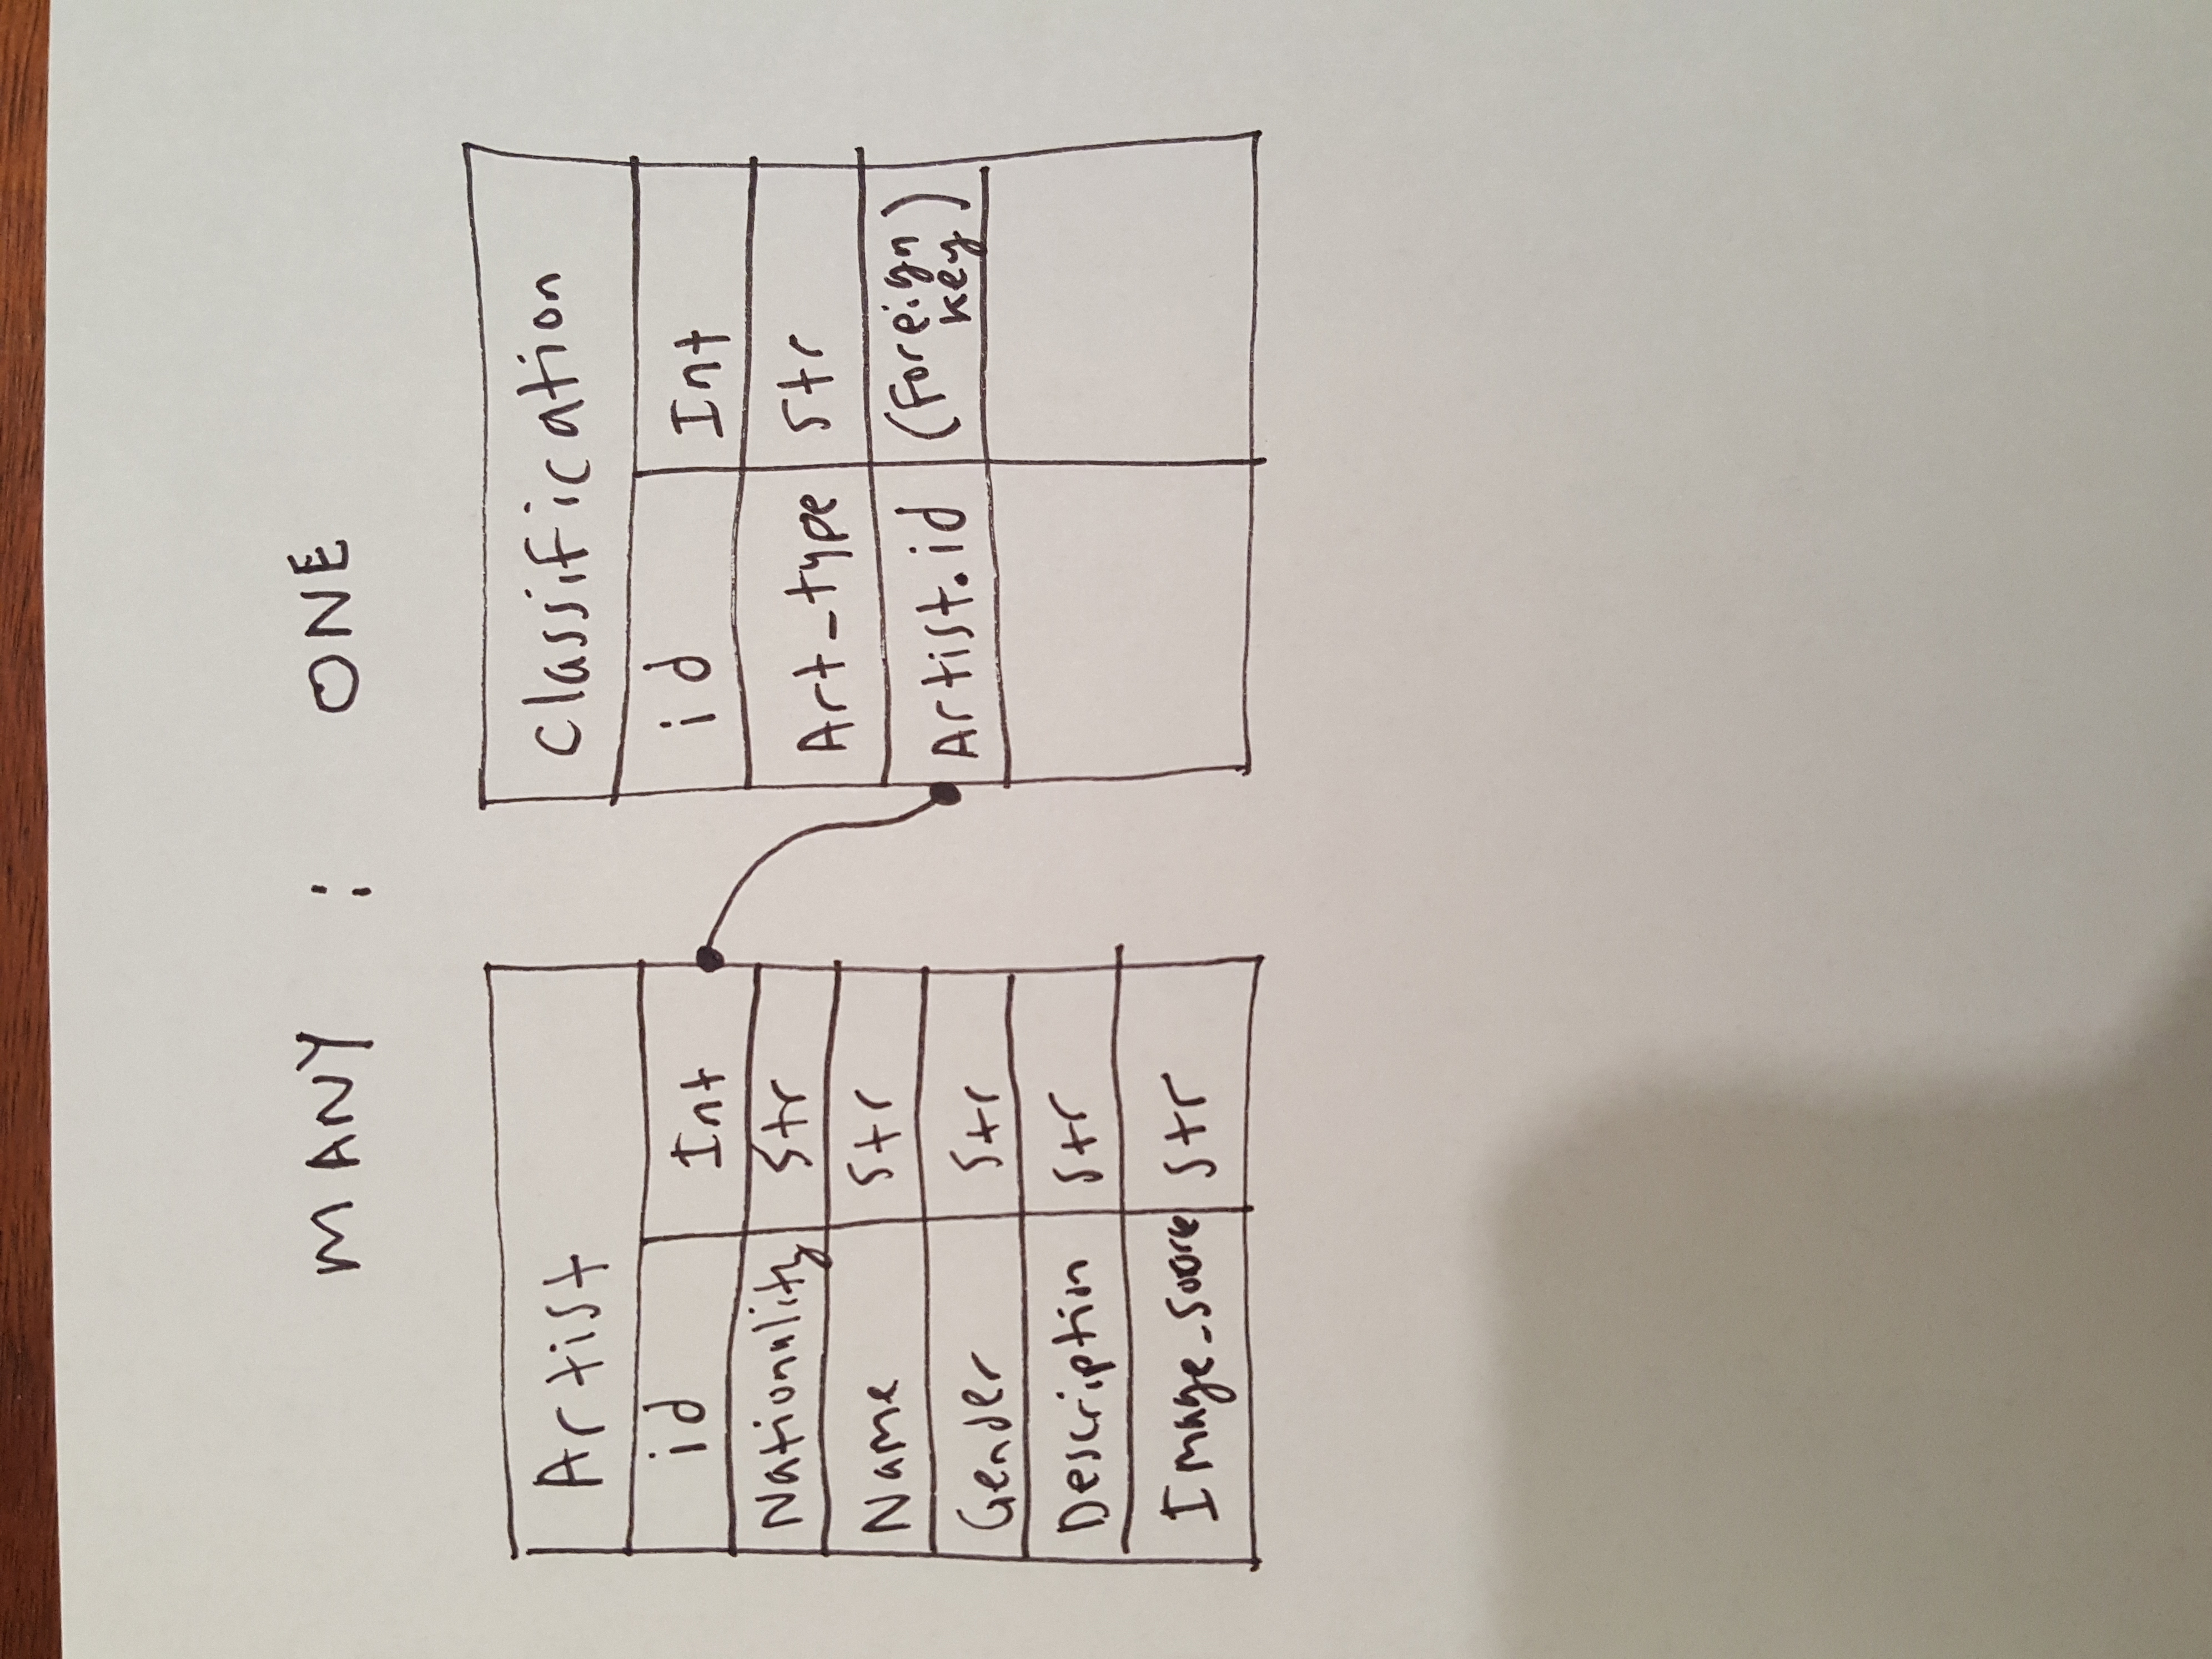 MANY : ONE
Artist
id Int
Nationality Str
Name Str
Gender Str
Description Str
Image_source Str
Classification
id Int
Art_type Str
Artist.id (Foreign
key)